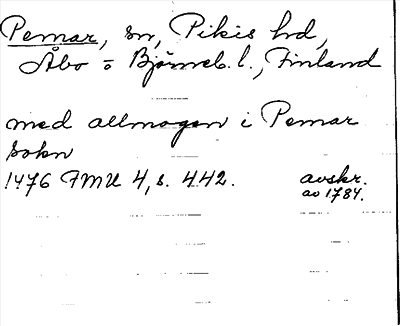 Pemar, sn, Pikis hd,
Åbo o Björneb. l., Finland
med allmogen i Pemar
sokn
1476 FMU 4, s. 442. avskr.
av 1784.